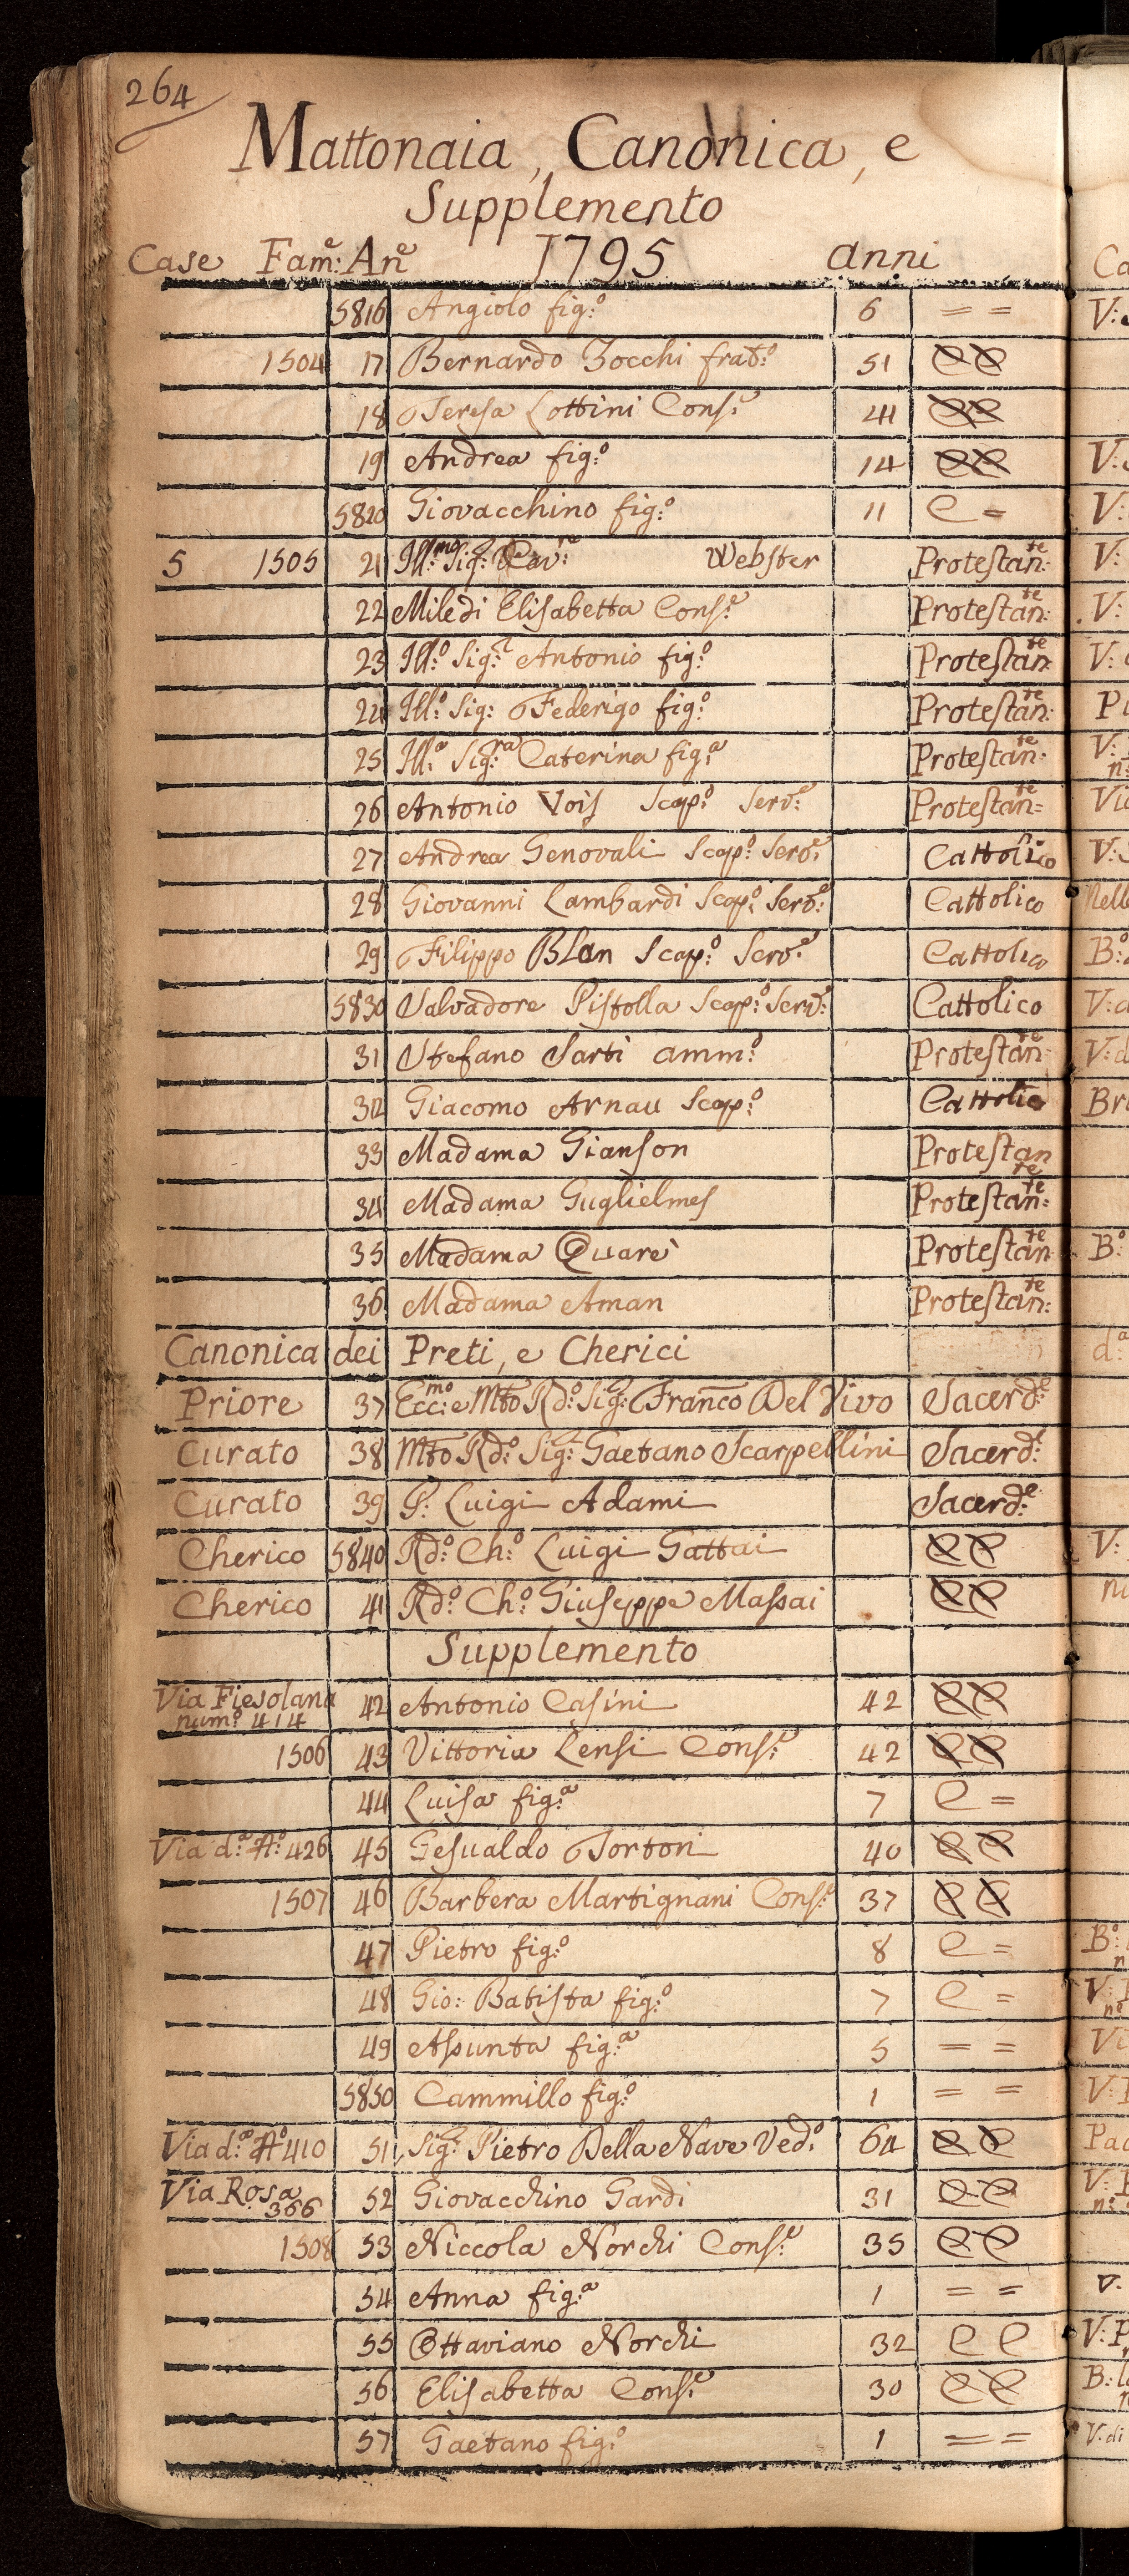 264
Mattonaia, Canonica, e
Supplemento
Case Fam:e An:e 1795 anni
5816 Angiolo fig:o 6 = =
1504 17 Bernardo Zocchi frat:o 51 C C
18 Teresa Lottini Cons:e 41 C C
19 Andrea fig:o 14 C C
5820 Giovacchino fig:o 11 C =
5 1505 21 Ill:mo Sig:r Cav:re Webster Protestan:te
22 Miledi Elisabetta Cons:e Protestan:te
23 Ill:o Sig:r Antonio fig:o Protestan:te
24 Ill:o Sig: Federigo fig:o Protestan:te
25 Ill:a Sig:ra Caterina fig:a Protestan:te
26 Antonio Vois Scap:o Serv:e Protestan:te
27 Andrea Genovali Scap:o Serv:e Cattolico
28 Giovanni Lambardi Scap:o Serv:e Cattolico
29 Filippo Blan Scap:o Serv:e Cattolico
5830 Salvadore Pistolla Scap:o Serv:e Cattolico
31 Stefano Sarti amm:o Protestan:te
32 Giacomo Arnau Scap:o Cattolico
33 Madama Gianson Protestante
34 Madama Guglielmes Protestan:te
35 Madama Quarè Protestan:te
36 Madama Aman Protestan:te
Canonica dei Preti, e Cherici
Priore 37 Ecc:mo e Mto Rd:o Sig:r Franco Del Vivo Sacerd:e
Curato 38 Mto Rd:o Sig:r Gaetano Scarpellini Sacerd:e
Curato 39 P: Luigi Adami Sacerd:e
Cherico 5840 Rd:o Ch:o Luigi Gattai C C
Cherico 41 Rd:o Ch:o Giuseppe Massai C C
Supplemento
Via Fiesolana num:o 414 42 Antonio Casini 42 C C
1506 43 Vittoria Lensi Cons:e 42 C C
44 Luisa fig:a 7 C =
Via d:a N:o 426 45 Gesualdo Tortoni 40 C C
1507 46 Barbera Martignani Cons:e 37 C C
47 Pietro fig:o 8 C =
48 Gio: Batista fig:o 7 C =
49 Assunta fig:a 5 = =
5850 Cammillo fig:o 1 = =
Via d:a N:o 410 51 Sig:r Pietro Della Nave Ved:o 64 C C
Via Rosa 366 52 Giovacchino Gardi 31 C C
1508 53 Niccola Norchi Cons:e 35 C C
54 Anna fig:a 1 = =
55 Ottaviano Norchi 32 C C
56 Elisabetta Cons:e 30 C C
57 Gaetano fig:o 1 = =